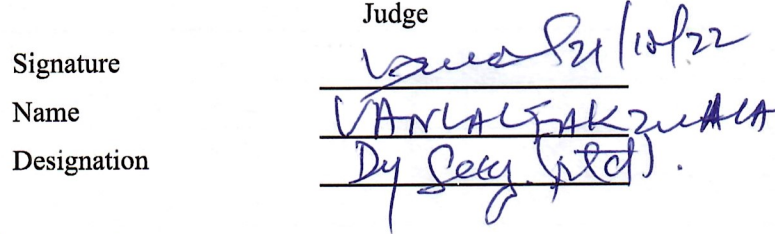 Judge
Signature 21/10/22
Name VANLALFAKZUALA
Designation Dy Secy. (rtd).